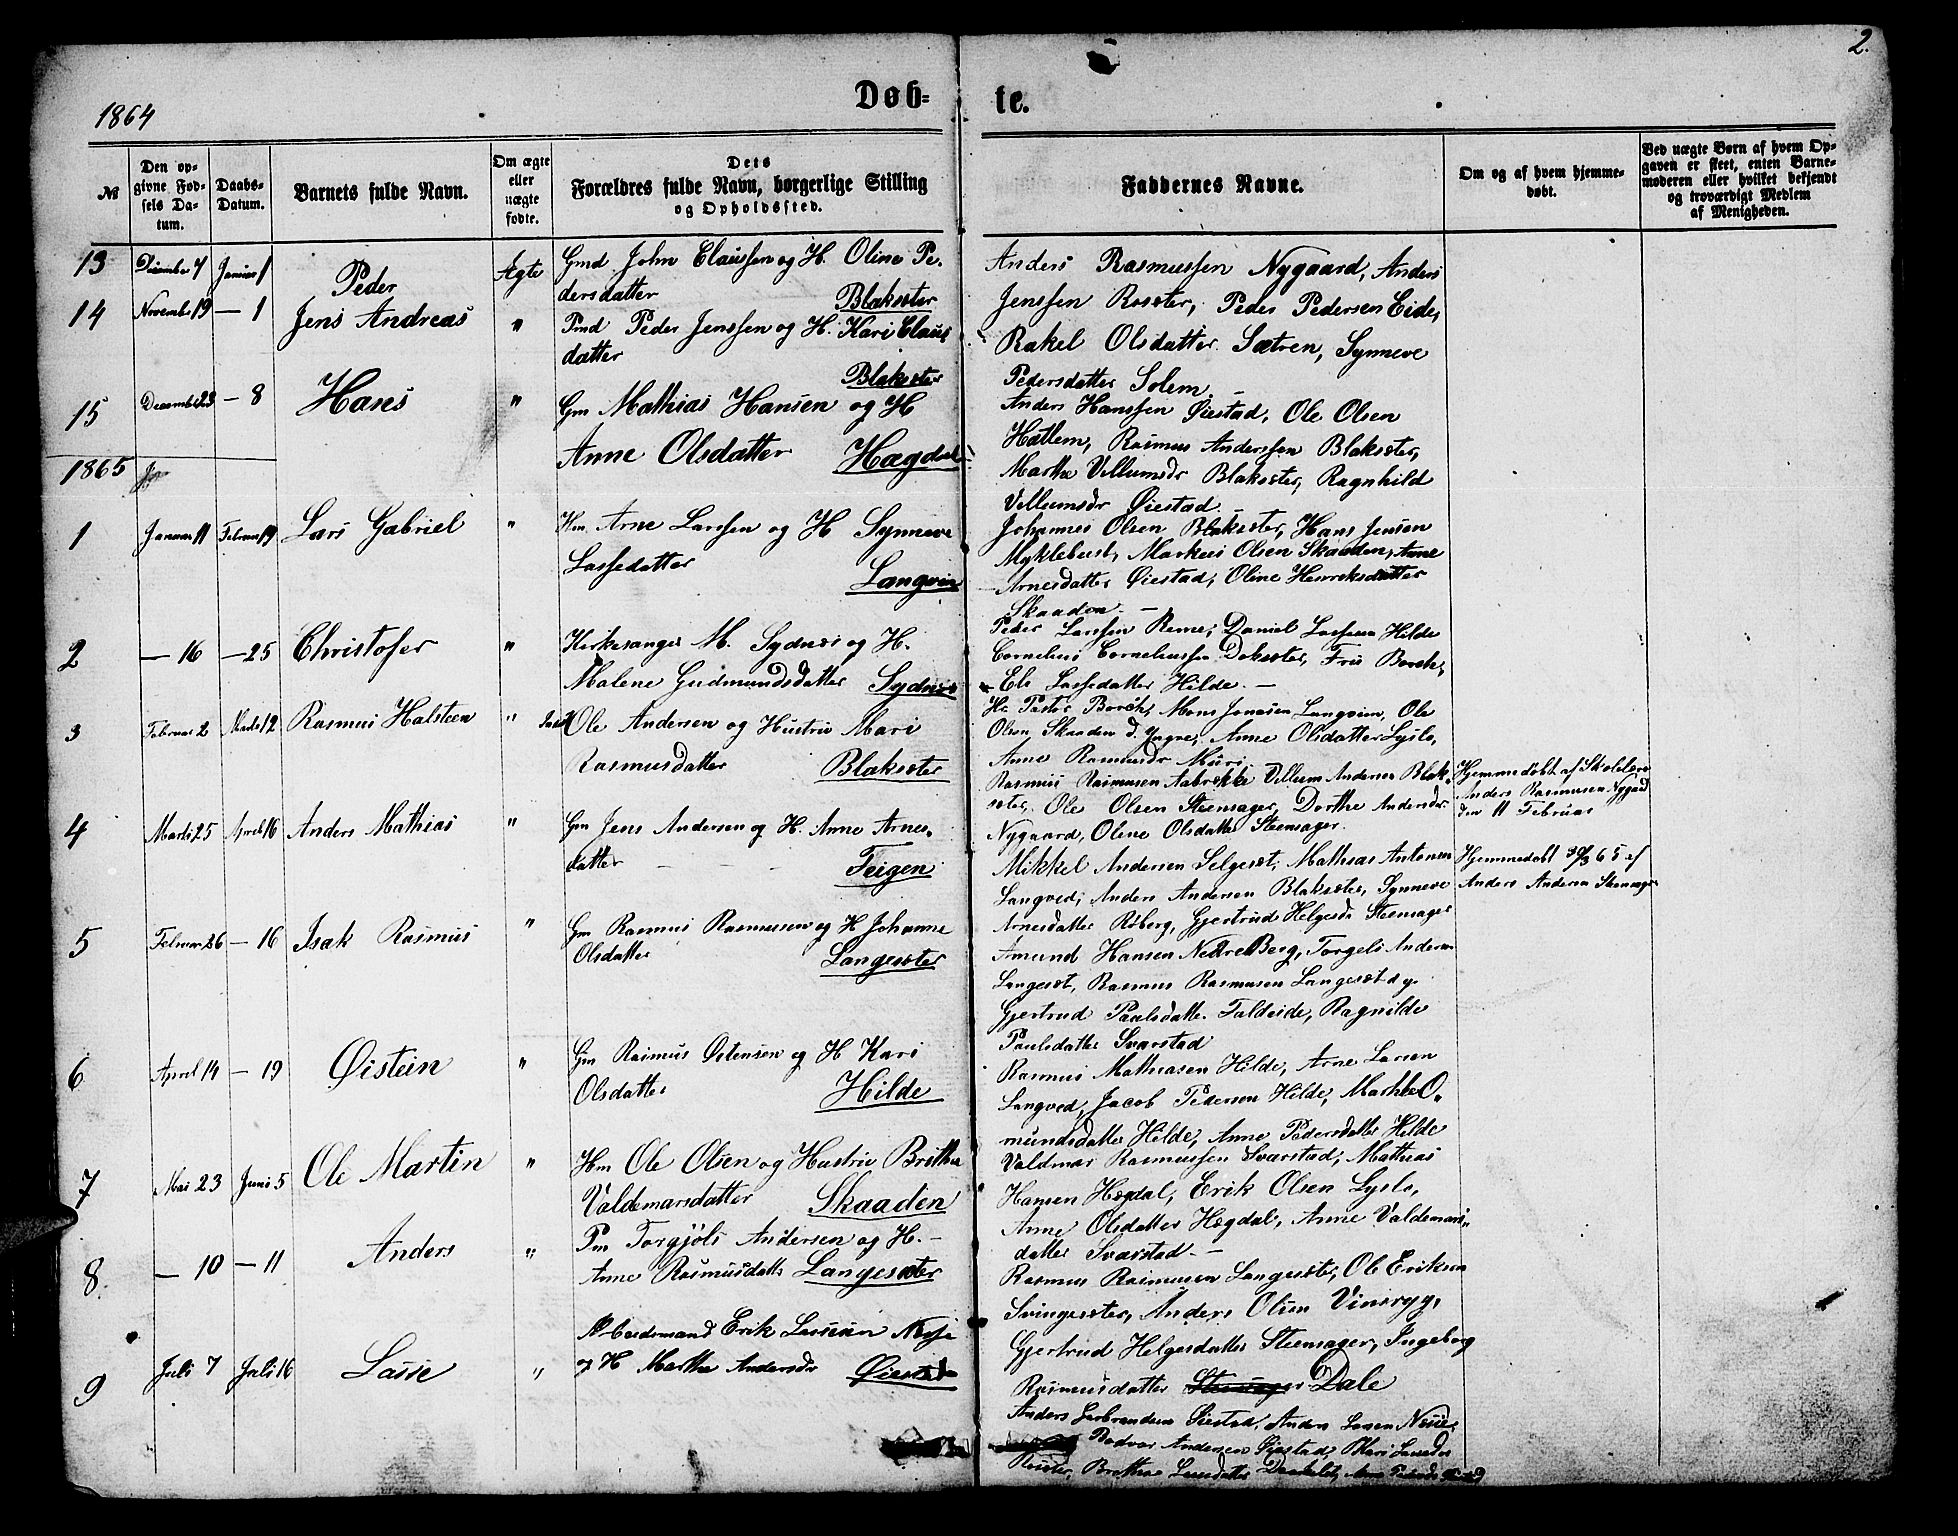 2.
1864
Døb- te.
№
Den opgivne Fødsels Datum.
Daabs-Datum.
Barnets fulde Navn.
Om ægte eller uægte fødte.
Dets Forældres fulde Navn, borgerlige Stilling og Opholdssted.
Faddernes Navne.
Om og af hvem hjemmedøbt.
Ved uægte Børn af hvem Opgaven er skeet, enten Barnemoderen eller hvilket bekjendt og troværdigt Medlem af Menigheden.
13 December 7 Januar 1 Peder Ægte Gmd John Claussen og H. Oline Pe-
dersdatter Blaksæter
Anders Rasmussen Nygaard, Anders
Jenssen Rosæter, Peder Pedersen Eide,
Rakel Olsdatter Sætren, Synneve
Pedersdatter Solem.
14 November 19 — 1 Jens Andreas " Pmd Peder Jenssen og H. Kari Claus
datter Blaksæter
Anders Hanssen Øiestad, Ole Olsen
Hatlem, Rasmus Anderssen Blaksæter,
Marthe Villumsdr Blaksæter, Ragnhild
Villumsdr Øiestad
15 December 23 — 8 Hans " Gm Mathias Hansen og H
Anne Olsdatter Hægdal
Johannes Olsen Blaksæter, Hans Jensen
Myklebust, Markus Olsen Skaaden, Anne
Arnesdatter Øiestad, Oline Henriksdatter
Skaaden —
1865
1 Januar 11 Februar 19 Lars Gabriel " Hm Arne Larssen og H Synneve
Lassedatter Langvin
Peder Larssen Reme, Daniel Lassesen Hilde
Cornelius Corneliussen Doksæter, Fru Borch,
Eli Lassedatter Hilde. —
2 — 16 — 25 Christofer " Kirkesanger M. Sydnes og H.
Malene Gudmundsdatter Sydnes
Hr Pastor Borch, Mons Jonasen Langvin, Ole
Olsen Skaaden d. Yngre, Anne Olsdatter Lyslo,
Anne Rasmusdr Muri
3 Februar 2 Marts 12 Rasmus Halsteen " Ole Andersen og Hustru Mari
Rasmusdatter Blaksæter
Rasmus Rasmusen Aabrekke Villum Andersen Blak-
sæter, Ole Olsen Steensager, Dorthe Andersdr
Nygaard, Oline Olsdatter Steensager.
Hjemmedøbt af Skolelærer
Anders Rasmusen Nygaard
den 11 Februar
4 Marts 25 April 16 Anders Mathias " Gm Jens Andersen og H. Anne Arnes-
datter — — Teigen
Mikkel Andersen Selgeset, Mathias Antonsen
Langved, Anders Andersen Blaksæter, Synneve
Arnesdatter Røberg, Gjertrud Helgesdr Steensager
Hjemmedøbt 30/3 65 af
Anders Andersen Steensager
5 Februar 26 — 16 Isak Rasmus " Gm Rasmus Rasmussen og H Johanne
Olsdatter Langesæter
Amund Hansen Nedre Berg, Torgels Andersen
Langeset, Rasmus Rasmusen Langeset d y.
Gjertrud Paulsdatter Faldeide, Ragnilde
Paulsdatter Svarstad
6 April 14 — 19 Øistein " Gm Rasmus Østensen og H Kari
Olsdatter Hilde
Rasmus Mathiasen Hilde, Arne Larsen
Langved, Jacob Pedersen Hilde, Marthe O-
mundsdatter Hilde, Anne Pedersdatter Hilde
7 Mai 23 Juni 5 Ole Martin " Hm Ole Olsen og Hustru Brithe
Valdemarsdatter Skaaden
Valdmar Rasmussen Svarstad, Mathias
Hansen Hægdal, Erik Olsen Lyslo,
Anne Olsdatter Hægdal, Anne Valdemars-
datter Svarstad —
8. — 10 — 11 Anders " Pm Torgjøls Andersen og H. —
Anne Rasmusdatter Langesæter
Rasmus Rasmusen Langesæter, Ole Eriksen
Svingesæter, Anders Olsen Vinsryg,
Gjertrud Helgesdatter Steensager, Ingeborg
Rasmusdatter Dale
9 Juli 7 Juli 16 Lasse " Arbeidsmand Erik Lassesen Nesje
og H Marthe Andersdr Øiestad
Anders Øiestad, Anders Larsen
Bodvar Andersen Øiestad, Kari
Brithe